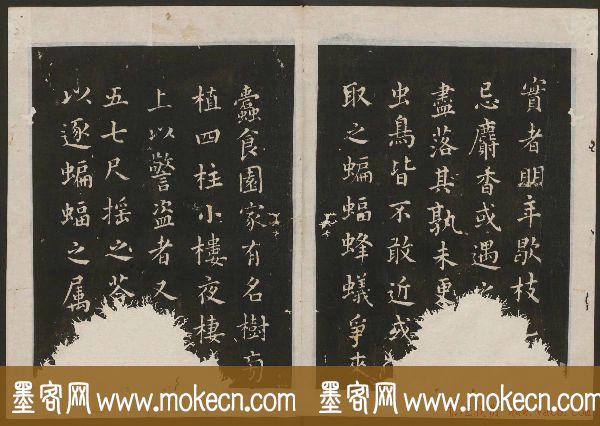 實者明年歇枝
忌麝香或遇
盡落其孰未更
虫鳥皆不敢近或
取之蝙蝠蜂蟻爭來
蠹食園家有名樹旁
植四柱小樓夜棲
上以警盜者又
五七尺摇之荅
以逐蝙蝠之属
墨客网 www.mokecn.com 墨客网 www.mokecn.com